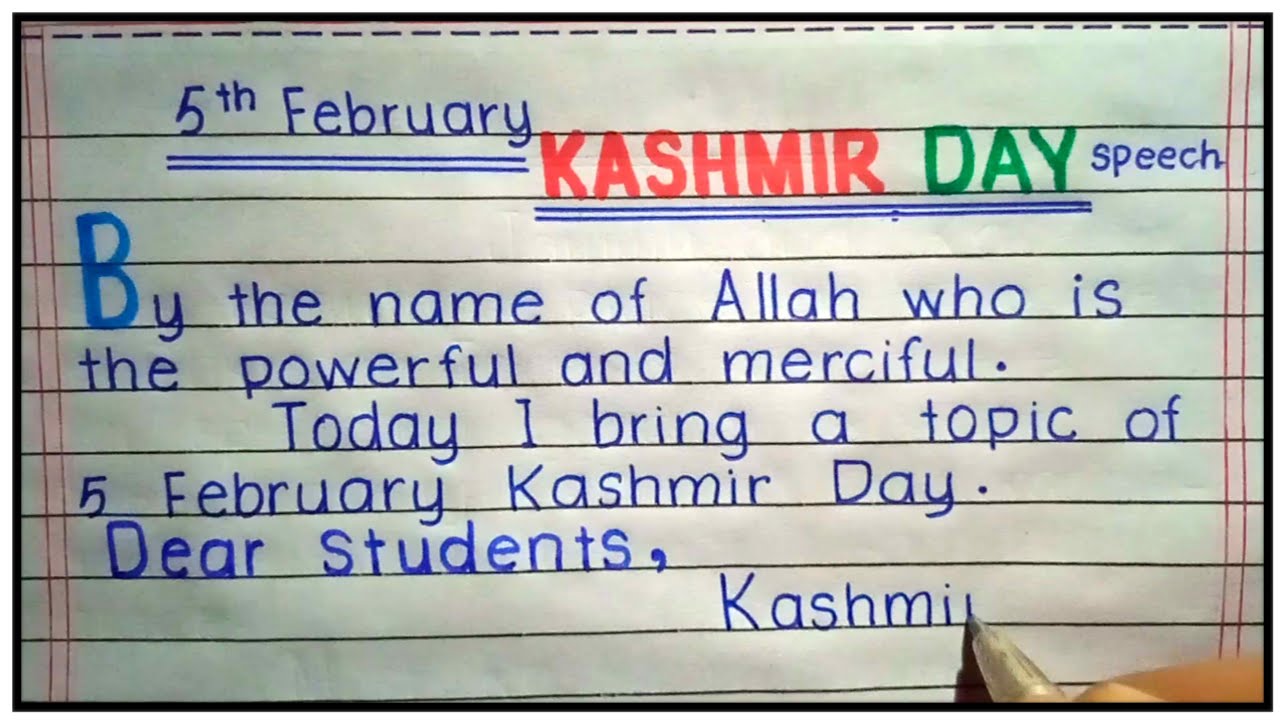 5th February
KASHMIR DAY speech
By the name of Allah who is
the powerful and merciful.
Today I bring a topic of
5 February Kashmir Day.
Dear students,
Kashmi